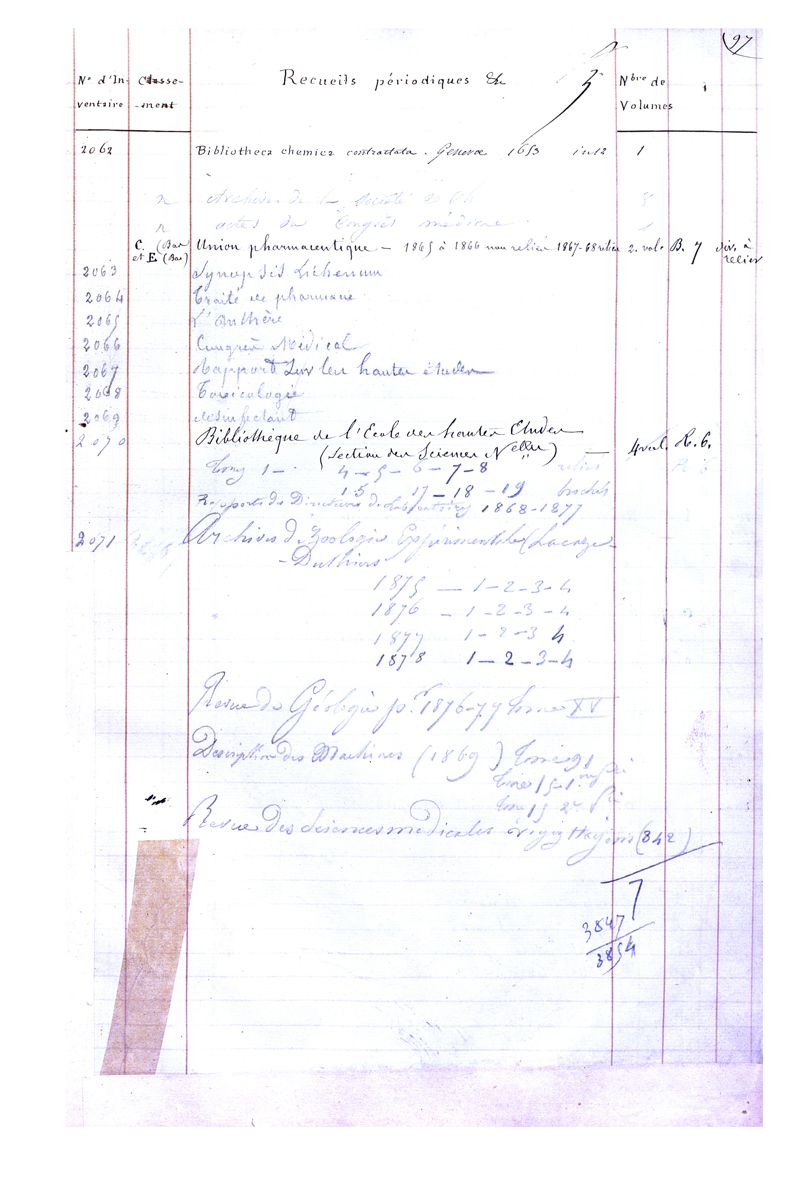 97
N° d'In- Classe- Recueils périodiques &c Nbre de
ventaire -ment Volumes
2062 Bibliotheca chemica contractata. Genevae 1653 in 12 1
Archives de la société
actes du Congrès médical
C. (Bas Union pharmaceutique – 1865 à 1866 non relié 1867-68 relié 2. vol. B. 7 div. à
et E (Bas) relier
2063 Synopsis Lichenum
2064 Traité de pharmacie
2065 L'Anthère
2066 Congrès Médical
2067 Rapport Sur les hautes études
2068 Toxicologie
2069 désinfectant
2070 Bibliothèque de l'Ecole des hautes Etudes
(Section des Sciences Nelles) — 4 vol. R. 6.
Tomes 1 – 4 – 5 – 6 – 7 – 8 reliés
15 17 – 18 – 19 brochés
Rapports des Directeurs de Laboratoires 1868-1877
2071 Archives d Zoologie Expérimentale (Lacaze-
-Duthiers
1875 — 1 – 2 – 3 – 4
1876 — 1 – 2 – 3 – 4
1877 1 – 2 – 3 4
1878 1 – 2 – 3 – 4
Revue de Géologie pr 1876-77 tome XV
Description des Machines (1869) tome 91
tome 15 – 1re
tome 15 2e
Revue des Sciences médicales Hayem (842)
7
3847
3854